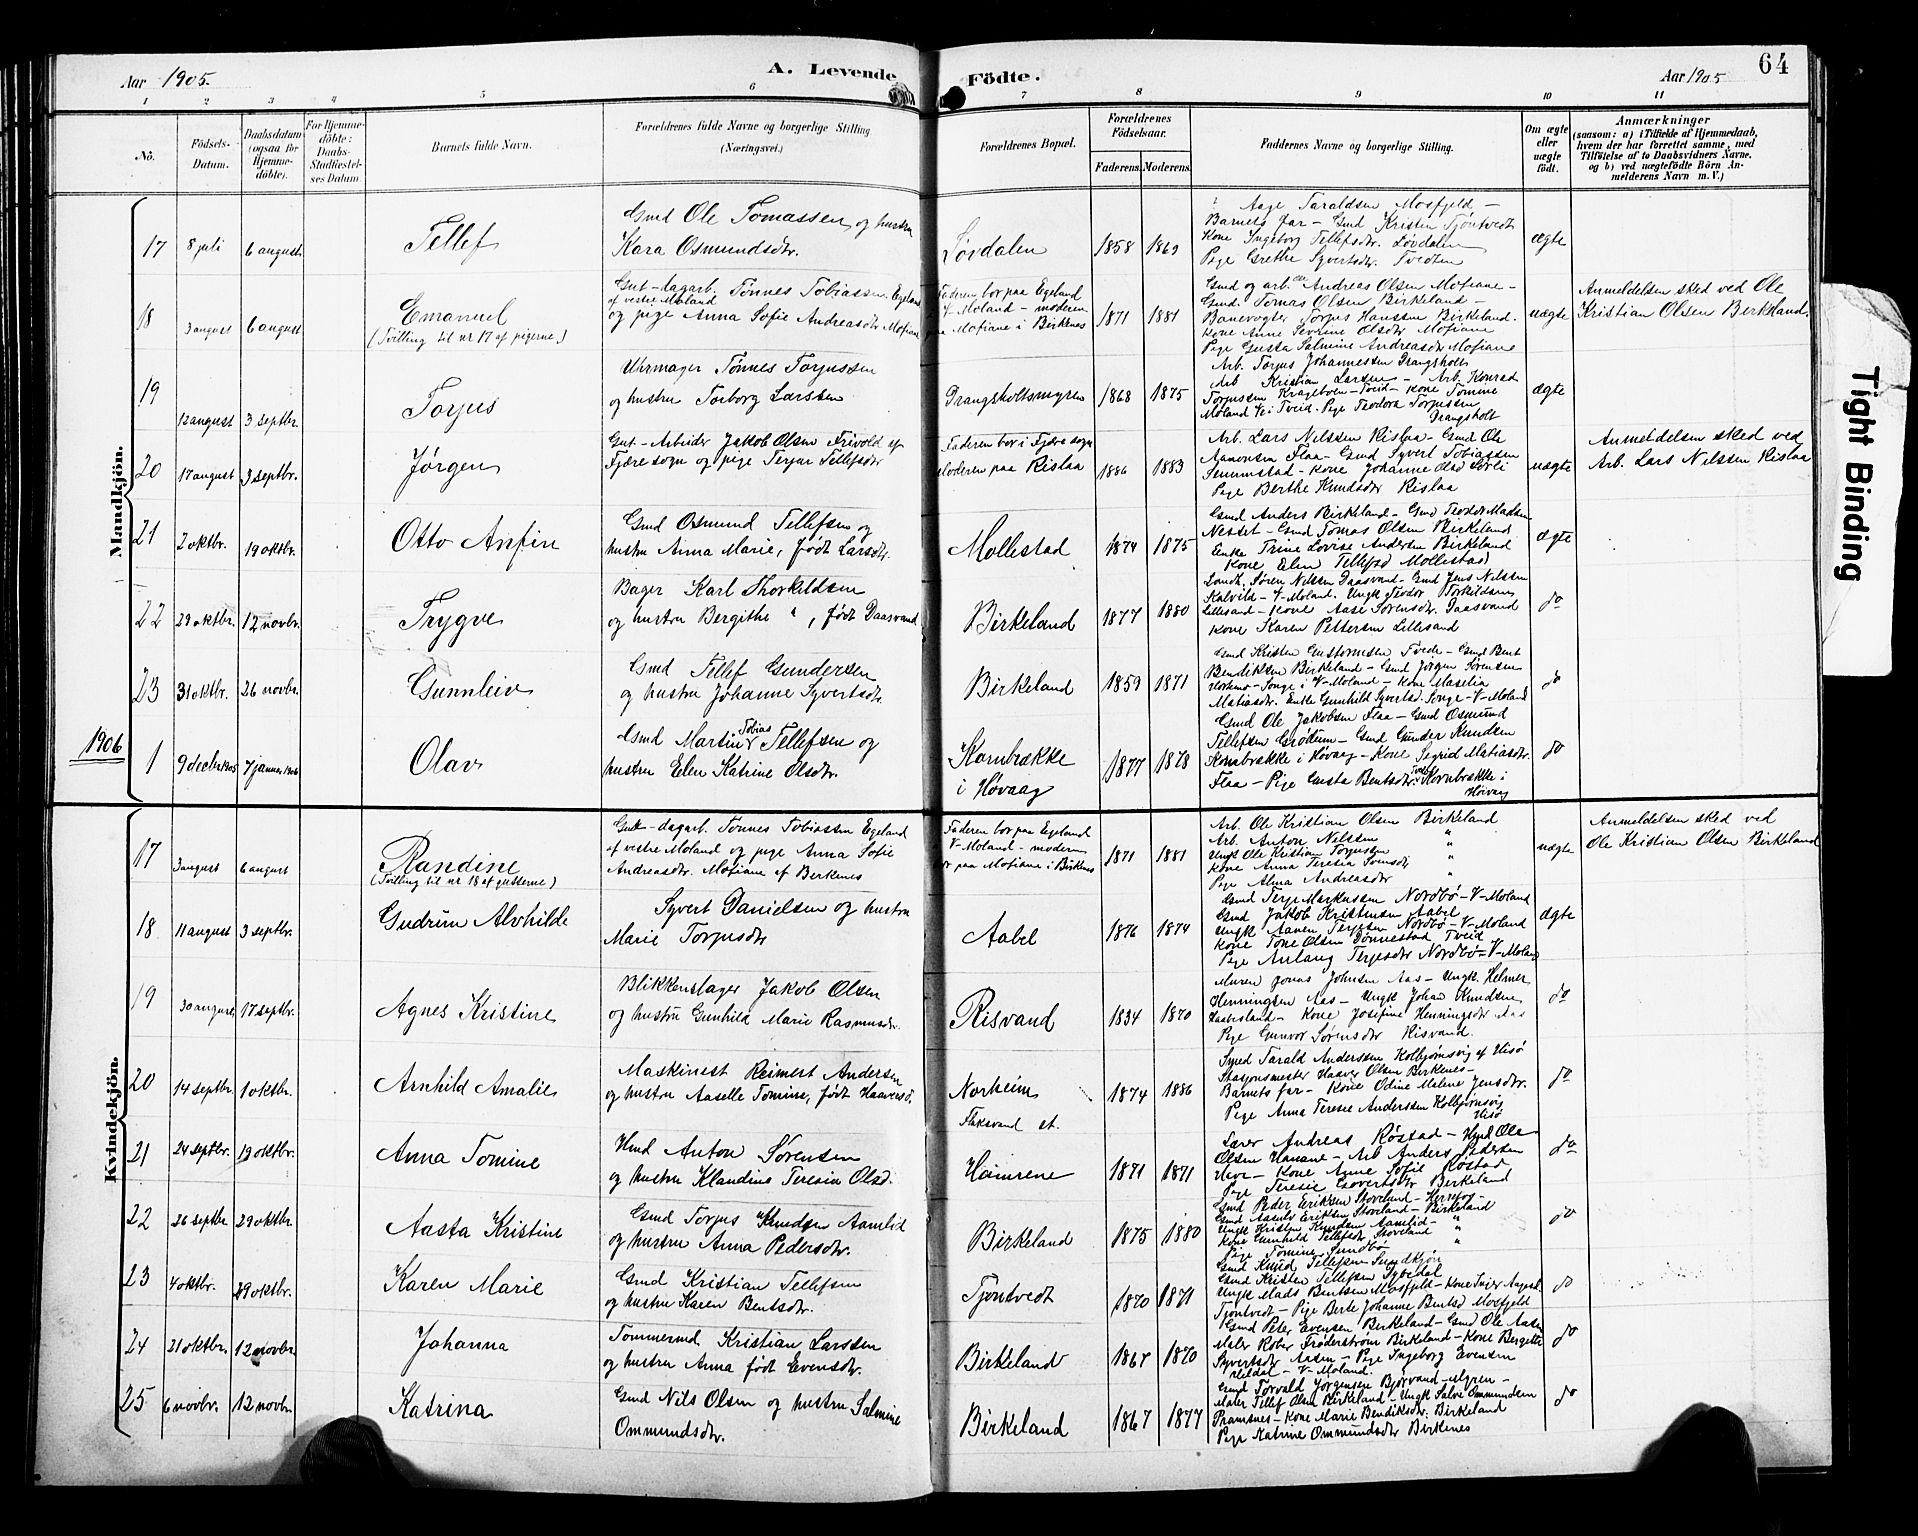 Aar 1905.
A. Levende
Födte.
Aar 1905
64
1 2 3 4 5 6 7 8 9 10 11
No.
Födsels-Datum.
Daabsdatum (ogsaa for Hjemmedöbte).
For Hjemmedöbte: Daabs-Stadfæstelses Datum.
Barnets fulde Navn.
Forældrenes fulde Navne og borgerlige Stilling (Næringsvei.)
Forældrenes Bopæl.
Forældrenes Födselsaar.
Faderens. Moderens.
Faddernes Navne og borgerlige Stilling.
Om ægte eller uægte født.
Anmærkninger
(saasom: a) i Tilfælde af Hjemmedaab,
hvem der har forrettet samme, med
Tilföielse af to Daabsvidners Navne.
og b) ved uægtefödte Börn An-
melderens Navn m. V.)
Mandkjön.
17 8 juli 6 august Tellef
Gmd Ole Tomassen og hustru
Kara Osmundsdtr.
Løvdalen 1858 1869
Aage Taraldsen Mosfjeld –
Barnets far – Gmd Kristen Tjöntvedt
Kone Ingeborg Tellefsdtr. Løvdalen
Pige Grethe Syvertsdtr. Tvedten
ægte
18 3 august 6 august Emanuel
(Tvilling til nr 17 af pigerne)
Gut – dagarb. Tønnes Tobiassen Egeland
af vestre Moland
og pige Anna Sofie Andreasdtr Mofiane
Faderen bor paa Egeland
V Moland – moderen
paa Mofiane i Birkenes
1871 1881
Gmd og arb Andreas Olsen Mofiane –
Gmd. Tomas Olsen Birkeland –
Banevogter Torjus Hansen Birkeland.
Kone Anne Severine Olsdtr Mofiane
Pige Gusta Salmine Andreasdtr Mofiane
uægte
Anmeldelsen sked ved Ole
Kristian Olsen Birkeland.
19 12 august 3 septbr. Torjus
Uhrmager Tønnes Torjussen
og hustru Torborg Larssen
Drangsholtsmyren 1868 1875
Arb. Torjus Johannessen Drangsholt
Arb Kristian Larsen – Arb. Konrad
Torjussen Krageboen – Tveid – Kone Tomine
Moland i Tveid. Pige Teodora Torjussen
Drangsholt
ægte
20 17 august 3 septbr. Jørgen
Gut – Arbeider Jakob Olsen Frivold af
Fjære sogn og pige Terjer Tellefsdtr
Faderen bor i Fjære sogn
Moderen paa Rislaa
1886 1883
Arb. Lars Nilssen Rislaa – Gmd Ole
Aanonsen Flaa – Gmd Syvert Tobiassen
Senumstad – Kone Johanne Olsd
Pige Berthe Knudsdtr Rislaa
uægte
Anmeldelsen sked ved
Arb. Lars Nilssen Rislaa
21 2 oktbr. 19 oktbr. Otto Anfin
Gmd Osmund Tellefsen og
hustru Anna Marie, født Larsdtr.
Mollestad 1874 1875
Gmd Anders Birkeland – Gmd Teodor Madsen
Nesset Gmd Tomas Olsen Birkeland
Enke Trine Lovise Andersen Birkeland
Kone Elen Tellefsd Mollestad
ægte
22 29 oktbr. 12 novbr. Trygve
Bager Karl Thorkildsen
og hustru Bergithe " , født Daasvand
Birkeland 1877 1880
Landh. Søren Nilssen Daasvand – Gmd Jens Nilssen
Kalvild – V-Moland. Ungk Teodor Torkildsen
Lillesand – Kone Aase Sørensdtr. Daasvand
Kone Karen Pettersen Lillesand
do
23 31 oktbr. 26 novbr. Gunnleiv
Gmd Tellef Gundersen
og hustru Johanne Syvertsdtr.
Birkeland 1859 1871
Gmd Kristen Gustormsen Tvede – Gmd Bent
Bendiksen Birkeland – Gmd Jörgen Sørensen
– Songe i V-Moland – Kone Maselia
Matiasdtr. Enke Gunhild Syvertsd. Songe – V-Moland
do
1906
1 9 decbr 1905 7 januar 1906 Olav
Gmd Martin Tobias Tellefsen og
hustru Elen Katrine Olsdtr.
Kornbrække
i Høvaag
1877 1878
Gmd Ole Jakobsen Flaa – Gmd Osmund
Tellefsen Grødum – Gmd Gunder Knudsen
Kornbrække i Høvaag – Kone Sigrid Matiasdtr.
Flaa – Pige Gusta Bentsdtr. Kornbrække i
Höivaag
do
Kvindekjön.
17 3 august 6 august Randine
(Tvilling til nr 18 af gutterne)
Gut – dagarb. Tönnes Tobiassen Egeland
af vestre Moland og pige Anna Sofie
Andreasdtr. Mofiane af Berkenes
Faderen bor paa Egeland
V-Moland – moderen
bor paa Mofiane i Birkenes
1871 1881
Arb. Ole Kristian Olsen Birkeland
Arb. Anton Nilssen "
Ungk Ole Kristian Torjussen "
Kone Anna Teresia Svensdtr "
Pige Alma Andreasdtr "
uægte
Anmeldelsen sked ved
Ole Kristian Olsen Birkeland
18 11 august 3 septbr. Gudrun Alvhilde
Syvert Danielsen og hustru
Marie Torjusdtr
Aabel 1876 1874
Gmd Terje Markussen Nordbø – V-Moland
Gmd Jakob Kristensen Aabel
Ungk Aanen Terjesen Nordbø – V-Moland
Kone Tone Olsen Dønnestad Tveid
Pige Anlaug Terjesdtr Nordbø – V-Moland
ægte
19 30 august 17 septbr. Agnes Kristine
Blikkenslager Jakob Olsen
og hustru Gunhild Marie Rasmusdtr.
Risvand 1834 1870
Murer Jonas Johnsen Aas – Ungk. Helmer
Henningsen Aas – Ungk Johan Knudsen
Haabesland – Kone Josefine Henningsdtr Aas
Pige Gunvor Sørensdtr Risvand.
do
20 14 septbr. 1 oktbr. Arnhild Amalie
Maskinist Reimert Andersen
og hustru Aaselle Tomine, født Haaversd.
Norheim
Flaksvand st.
1874 1886
Smed Tarald Anderssen Kolbjørnsvig af Hisø
Stasjonsmester Haaver Olsen Birkenes –
Barnets far – Kone Odine Malene Jensdtr.
Pige Anna Teresie Anderssen Kolbjørnsvig
Hisø
do
21 24 septbr. 19 oktbr. Anna Tomine
Hmd Anton Sørensen
og hustru Klaudine Teresia Olsd.
Hamrene 1871 1871
Lærer Andreas Røstad – Hmd Ole
Olsen Hanane – Arb Anders Pedersen
Heve – Kone Anne Sofie Røstad
Pige Teresie Birkeland
do
22 26 septbr 29 oktbr. Aasta Kristine
Gmd Torjus Knudsen Aamlid
og hustru Anna Pedersdtr.
Birkeland 1875 1880
Gmd Peder Eriksen Stoveland – Herrefos –
Gmd Aasulv Eriksen Stovland – Birkeland
Ungk Kristen Knudsen Aamlid – "
Kone Gunhild Tellefsdtr Stoveland "
Pige Tomine Sundbø "
do
23 4 oktbr. 29 oktbr. Karen Marie
Gmd Kristian Tellefsen
og hustru Karen Bentsdtr.
Tjöntvedt 1870 1871
Gmd Knud Tellefsen
Gmd Kristen Tellefsen
Ungk Mads Bentsen Mosfjeld – Kone
Tjöntvedt – Pige Berte Johanne Bentsd Mosfjeld
do
24 21 oktbr. 12 novbr Johanna
Tømmermd Kristian Larssen
og hustru Anna født Evensdtr.
Birkeland 1867 1870
Gmd Peter Evensen Birkeland – Gmd Ole Aasen
Maler Rober Frøderstrøm Birkeland – Kone Bergitte
Syvertsdtr Aasen – Pige Ingeborg Evensen
V-Moland.
do
25 6 novbr. 12 novbr. Katrina
Gmd Nils Olsen og hustru Salmine
Ommundsdtr.
Birkeland 1867 1877
Gmd Torvald Jørgensen Bjorvand –
Maler Tellef Olsen Birkeland – Ungk Salve Ommundsen
Pramsnes – Kone Marie Bendiksdtr. Birkeland
Pige Katrine Ommundsdtr Birkenes
do
Tight Binding